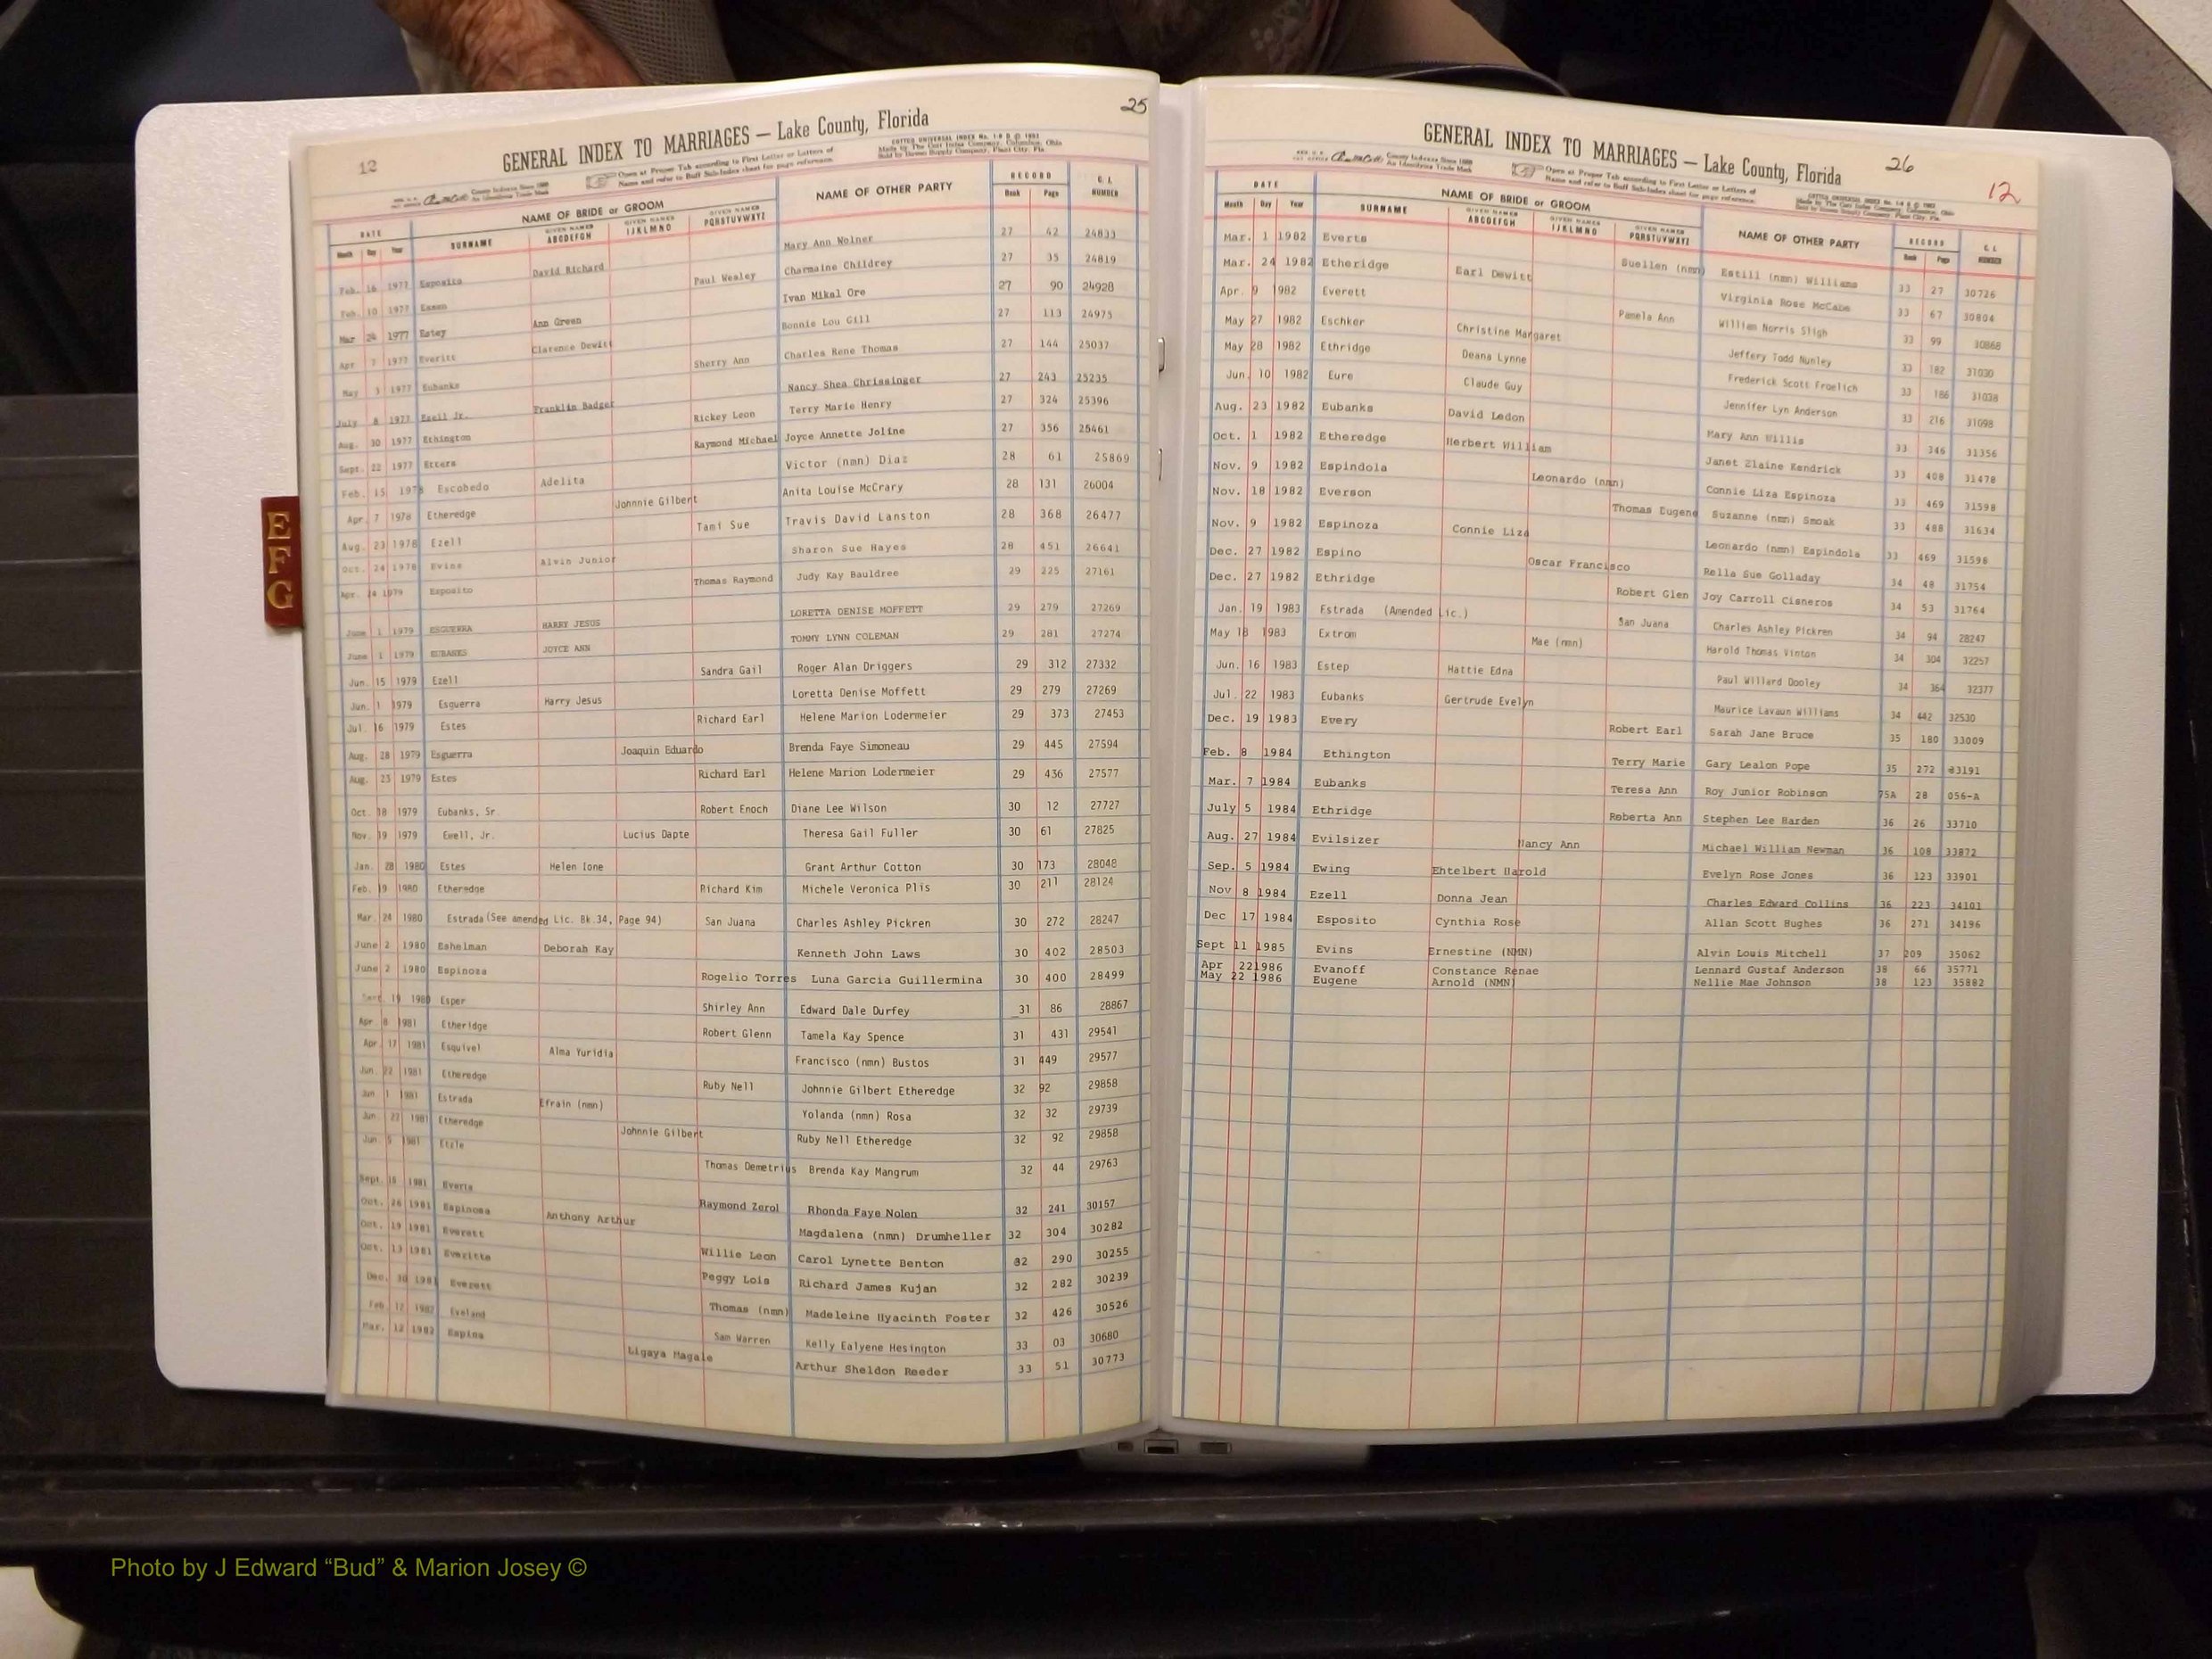 12
25
GENERAL INDEX TO MARRIAGES — Lake County, Florida
Open at Proper Tab according to First Letter or Letters of
Name and refer to Buff Sub-Index sheet for page reference.
DATE NAME OF BRIDE or GROOM NAME OF OTHER PARTY RECORD G. I. NUMBER
Month Day Year SURNAME GIVEN NAMES ABCDEFGH GIVEN NAMES IJKLMNO GIVEN NAMES PQRSTUVWXYZ Book Page
Feb. 16 1977 Esposito David Richard Mary Ann Wolner 27 42 24833
Feb. 10 1977 Essen Paul Wesley Charmaine Childrey 27 35 24819
Mar 24 1977 Estey Ann Green Ivan Mikal Ore 27 90 24928
Apr 7 1977 Everitt Clarence Dewitt Bonnie Lou Gill 27 113 24975
May 3 1977 Eubanks Sherry Ann Charles Rene Thomas 27 144 25037
July 8 1977 Ezell Jr. Franklin Badger Nancy Shea Chrissinger 27 243 25235
Aug. 30 1977 Ethington Rickey Leon Terry Marie Henry 27 324 25396
Sept. 22 1977 Etters Raymond Michael Joyce Annette Joline 27 356 25461
Feb. 15 1978 Escobedo Adelita Victor (nmn) Diaz 28 61 25869
Apr. 7 1978 Etheredge Johnnie Gilbert Anita Louise McCrary 28 131 26004
Aug. 23 1978 Ezell Tami Sue Travis David Lanston 28 368 26477
Oct. 24 1978 Evins Alvin Junior Sharon Sue Hayes 28 451 26641
Apr. 24 1979 Esposito Thomas Raymond Judy Kay Bauldree 29 225 27161
June 1 1979 ESGUERRA HARRY JESUS LORETTA DENISE MOFFETT 29 279 27269
June 1 1979 EUBANKS JOYCE ANN TOMMY LYNN COLEMAN 29 281 27274
Jun. 15 1979 Ezell Sandra Gail Roger Alan Driggers 29 312 27332
Jun. 1 1979 Esguerra Harry Jesus Loretta Denise Moffett 29 279 27269
Jul. 16 1979 Estes Richard Earl Helene Marion Lodermeier 29 373 27453
Aug. 28 1979 Esguerra Joaquin Eduardo Brenda Faye Simoneau 29 445 27594
Aug. 23 1979 Estes Richard Earl Helene Marion Lodermeier 29 436 27577
Oct. 18 1979 Eubanks, Sr Robert Enoch Diane Lee Wilson 30 12 27727
Nov. 19 1979 Ewell, Jr. Lucius Dapte Theresa Gail Fuller 30 61 27825
Jan. 28 1980 Estes Helen Ione Grant Arthur Cotton 30 173 28048
Feb. 19 1980 Etheredge Richard Kim Michele Veronica Plis 30 211 28124
Mar. 24 1980 Estrada (See amended Lic. Bk.34, Page 94) San Juana Charles Ashley Pickren 30 272 28247
June 2 1980 Eshelman Deborah Kay Kenneth John Laws 30 402 28503
June 2 1980 Espinoza Rogelio Torres Luna Garcia Guillermina 30 400 28499
Sept. 19 1980 Esper Shirley Ann Edward Dale Durfey 31 86 28867
Apr 8 1981 Etheridge Robert Glenn Tamela Kay Spence 31 431 29541
Apr. 17 1981 Esquivel Alma Yuridia Francisco (nmn) Bustos 31 449 29577
Jun. 22 1981 Etheredge Ruby Nell Johnnie Gilbert Etheredge 32 92 29858
Jun 1 1981 Estrada Efrain (nmn) Yolanda (nmn) Rosa 32 32 29739
Jun. 22 1981 Etheredge Johnnie Gilbert Ruby Nell Etheredge 32 92 29858
Jun. 5 1981 Thomas Demetrius Brenda Kay Mangrum 32 44 29763
Sept. 18 1981 Everts Raymond Zerol Rhonda Faye Nolen 32 241 30157
Oct. 26 1981 Espinosa Anthony Arthur Magdalena (nmn) Drumheller 32 304 30282
Oct. 19 1981 Everett Willie Leon Carol Lynette Benton 32 290 30255
Oct. 13 1981 Everitte Peggy Lois Richard James Kujan 32 282 30239
Dec. 30 1981 Everett Thomas (nmn) Madeleine Hyacinth Foster 32 426 30526
Feb. 12 1982 Eveland Sam Warren Kelly Ealyene Hesington 33 03 30680
Mar. 12 1982 Espina Ligaya Magale Arthur Sheldon Reeder 33 51 30773
E
F
G
GENERAL INDEX TO MARRIAGES — Lake County, Florida
26
12
Open at Proper Tab according to First Letter or Letters of
Name and refer to Buff Sub-Index sheet for page reference.
DATE NAME OF BRIDE or GROOM NAME OF OTHER PARTY RECORD G. I. NUMBER
Month Day Year SURNAME GIVEN NAMES ABCDEFGH GIVEN NAMES IJKLMNO GIVEN NAMES PQRSTUVWXYZ Book Page
Mar. 1 1982 Everts Suellen (nmn) Estill (nmn) Williams 33 27 30726
Mar. 24 1982 Etheridge Earl Dewitt Virginia Rose McCabe 33 67 30804
Apr. 9 1982 Everett Pamela Ann William Norris Sligh 33 99 30868
May 27 1982 Eschker Christine Margaret Jeffery Todd Nunley 33 182 31030
May 28 1982 Ethridge Deana Lynne Frederick Scott Froelich 33 186 31038
Jun. 10 1982 Eure Claude Guy Jennifer Lyn Anderson 33 216 31098
Aug. 23 1982 Eubanks David Ledon Mary Ann Willis 33 346 31356
Oct. 1 1982 Etheredge Herbert William Janet Elaine Kendrick 33 408 31478
Nov. 9 1982 Espindola Leonardo (nmn) Connie Liza Espinoza 33 469 31598
Nov. 18 1982 Everson Thomas Eugene Suzanne (nmn) Smoak 33 488 31634
Nov. 9 1982 Espinoza Connie Liza Leonardo (nmn) Espindola 33 469 31598
Dec. 27 1982 Espino Oscar Francisco Rella Sue Golladay 34 48 31754
Dec. 27 1982 Ethridge Robert Glen Joy Carroll Cisneros 34 53 31764
Jan. 19 1983 Estrada (Amended Lic.) San Juana Charles Ashley Pickren 34 94 28247
May 18 1983 Extrom Mae (nmn) Harold Thomas Vinton 34 304 32257
Jun. 16 1983 Estep Hattie Edna Paul Willard Dooley 34 364 32377
Jul. 22 1983 Eubanks Gertrude Evelyn Maurice Lavaun Williams 34 442 32530
Dec. 19 1983 Every Robert Earl Sarah Jane Bruce 35 180 33009
Feb. 8 1984 Ethington Terry Marie Gary Lealon Pope 35 272 33191
Mar. 7 1984 Eubanks Teresa Ann Roy Junior Robinson 75A 28 056-A
July 5 1984 Ethridge Roberta Ann Stephen Lee Harden 36 26 33710
Aug. 27 1984 Evilsizer Nancy Ann Michael William Newman 36 108 33872
Sep. 5 1984 Ewing Ehtelbert Harold Evelyn Rose Jones 36 123 33901
Nov 8 1984 Ezell Donna Jean Charles Edward Collins 36 223 34101
Dec 17 1984 Esposito Cynthia Rose Allan Scott Hughes 36 271 34196
Sept 11 1985 Evins Ernestine (NMN) Alvin Louis Mitchell 37 209 35062
Apr 22 1986 Evanoff Constance Renae Lennard Gustaf Anderson 38 66 35771
May 22 1986 Eugene Arnold (NMN) Nellie Mae Johnson 38 123 35882
Photo by J Edward “Bud” & Marion Josey ©